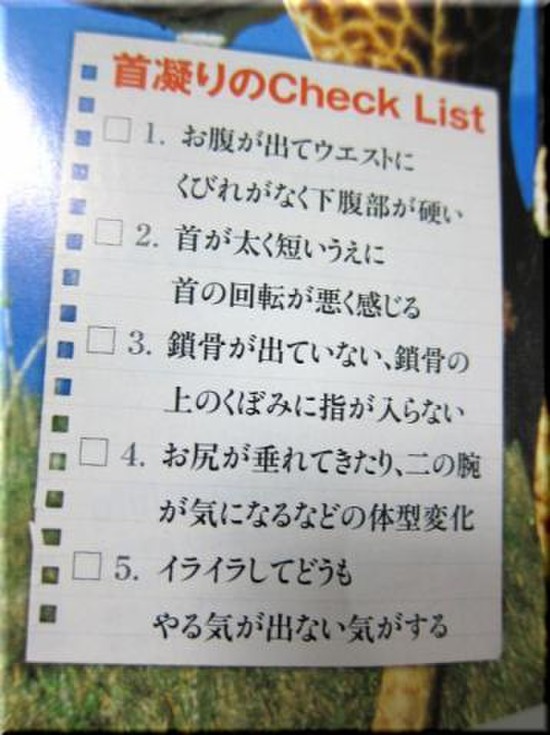 首凝りのCheck List
□ 1. お腹が出てウエストに
くびれがなく下腹部が硬い
□ 2. 首が太く短いうえに
首の回転が悪く感じる
□ 3. 鎖骨が出ていない、鎖骨の
上のくぼみに指が入らない
□ 4. お尻が垂れてきたり、二の腕
が気になるなどの体型変化
□ 5. イライラしてどうも
やる気が出ない気がする